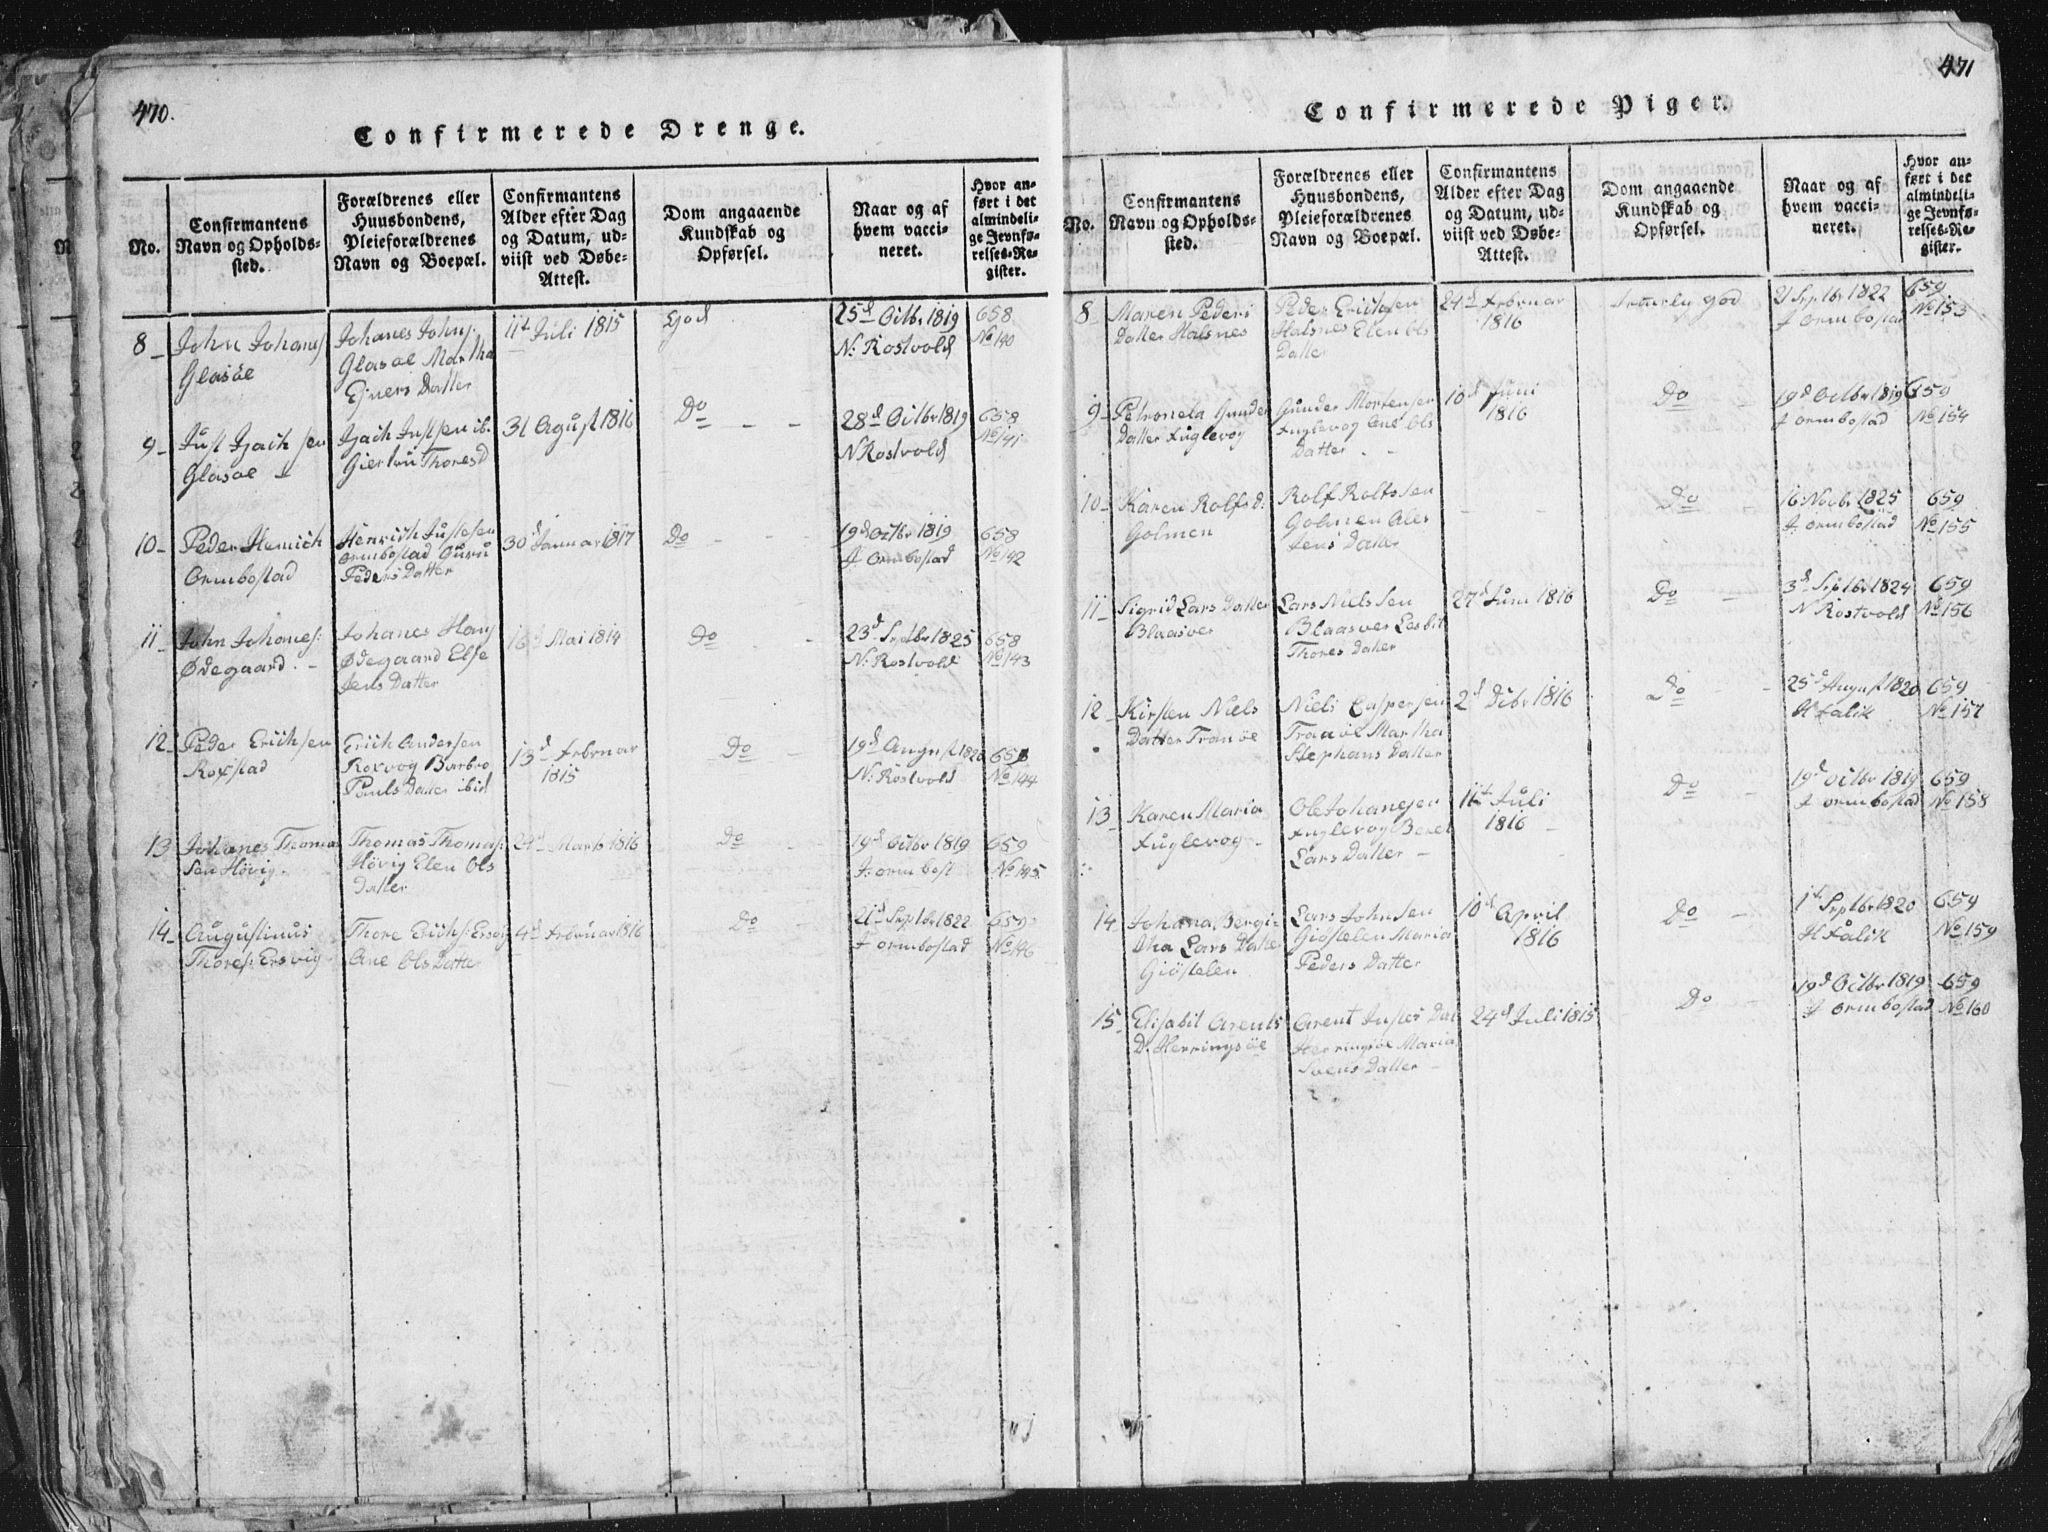 470.
Confirmerede Drenge.
No.
Confirmantens
Navn og Opholds-
sted.
Forældrenes eller
Huusbondens,
Pleieforældrenes
Navn og Boepæl.
Confirmantens
Alder efter Dag
og Datum, ud-
viist ved Døbe-
Attest.
Dom angaaende
Kundskab og
Opførsel.
Naar og af
hvem vacci-
neret.
Hvor an-
ført i det
almindeli-
ge Jevnfø-
relses-Re-
gister.
8
John Johanes
Glasöe
Johanes Johns
Glasöe Martha
Ejners Datter
11t Juli 1815
God
25d Octbr 1819
N: Rostvold
658
No 140
9
Just Isach sen
Glasöe
Isach Justsen ib.
Giertru Thoresd
31 Agust 1816
Do
28d Octbr 1819
N Rostvold
658
No 141
10
Peder Henrich
Ormbostad
Henrich Justesen
Ormbostad Guru
Peders Datter
30d Januar 1817
Do
19d Octbr 1819
J. Ormbostad
658
No 142
11
John Johanes:
Ødegaard.
Johanes Hans
Ødegaard Else
Jens Datter
16d Mai 1814
Do
23d Septbr 1825
N: Rostvold
658
No 143
12
Peder Erichsen
Roxstad
Erich Andersen
Roxvog Barbro
Pauls Datter ibid
13d Februar
1815
Do
19d August 1820
N: Rostvold
658
No 144
13
Johanes Thomas
Sen Høvig.
Thomas Thomas:
Høvig Elen Ols
Datter
24d Marts 1816
Do
19d Octbr 1819
J: Ormbost
659
No 145
14
Augustinus
Thores: Ersvig
Thore Erichs: Ersvig
Ane Ols Datter
4d Februar 1816
Do
21d Septbr 1822
J Ormbostad
659
No 146
471
Confirmerede Piger.
No.
Confirmantens
Navn og Opholds-
sted.
Forældrenes eller
Huusbondens,
Pleieforældrenes
Navn og Boepæl.
Confirmantens
Alder efter Dag
og Datum, ud-
viist ved Døbe-
Attest.
Dom angaaende
Kundskab og
Opførsel.
Naar og af
hvem vacci-
neret.
Hvor an-
ført i det
almindeli-
ge Jevnfø-
relses-Re-
gister.
8
Maren Peders
Datter Halsnes
Peder Erichsen
Halsnes Elen Ols
Datter
24d Februar
1816
god
21 Septbr 1822
J Ormbostad
659
No 153
9
Petronela Gunder
Datter Fuglevog
Gunder Mortensen
Fuglevog Ane Ols
Datter
10d Juni
1816
Do
19d Octbr 1819
J Ormbostad
659
No 154
10
Karen Rolfsd:
Golmen
Rolf Rolfssen
Golmen Ales
Jens Datter
Do
16 Novbr 1825
J. Ormbostad
659
No 155
11
Sigrid Lars Datter
Blaasver
Lars Nielssen
Blaasver Lisbit
Thores Datter
27d Juni 1816
Do
3d Septbr 1824
N Rostvold
659
No 156
12
Kirsten Niels
Datter Tranöe
Niels Caspersen
Tranöe Martha
Stephans Datter
2d Dcbr 1816
Do
25d August 1820
H Falik
659
No 157
13
Karen Maria
Fuglevog
Ole Johanesen
Fuglevog Beret
Lars Datter
11t Juli
1816
Do
19d Octbr 1819
J Ormbostad
659
No 158
14
Johana Bergi
tha Lars Datter
Giöstelen
Lars Johnsen
Giöstelen Maria
Peders Datter
10d April
1816
Do
1t Septbr 1820
H Falik
659
No 159
15
Elisabit Arents
D. Herringsöe
Arent Justes Dal
Herringsöe Maria
Svens Datter
24d Juli 1815
Do
19d Octbr 1819
J Ormbostad
659
No 160